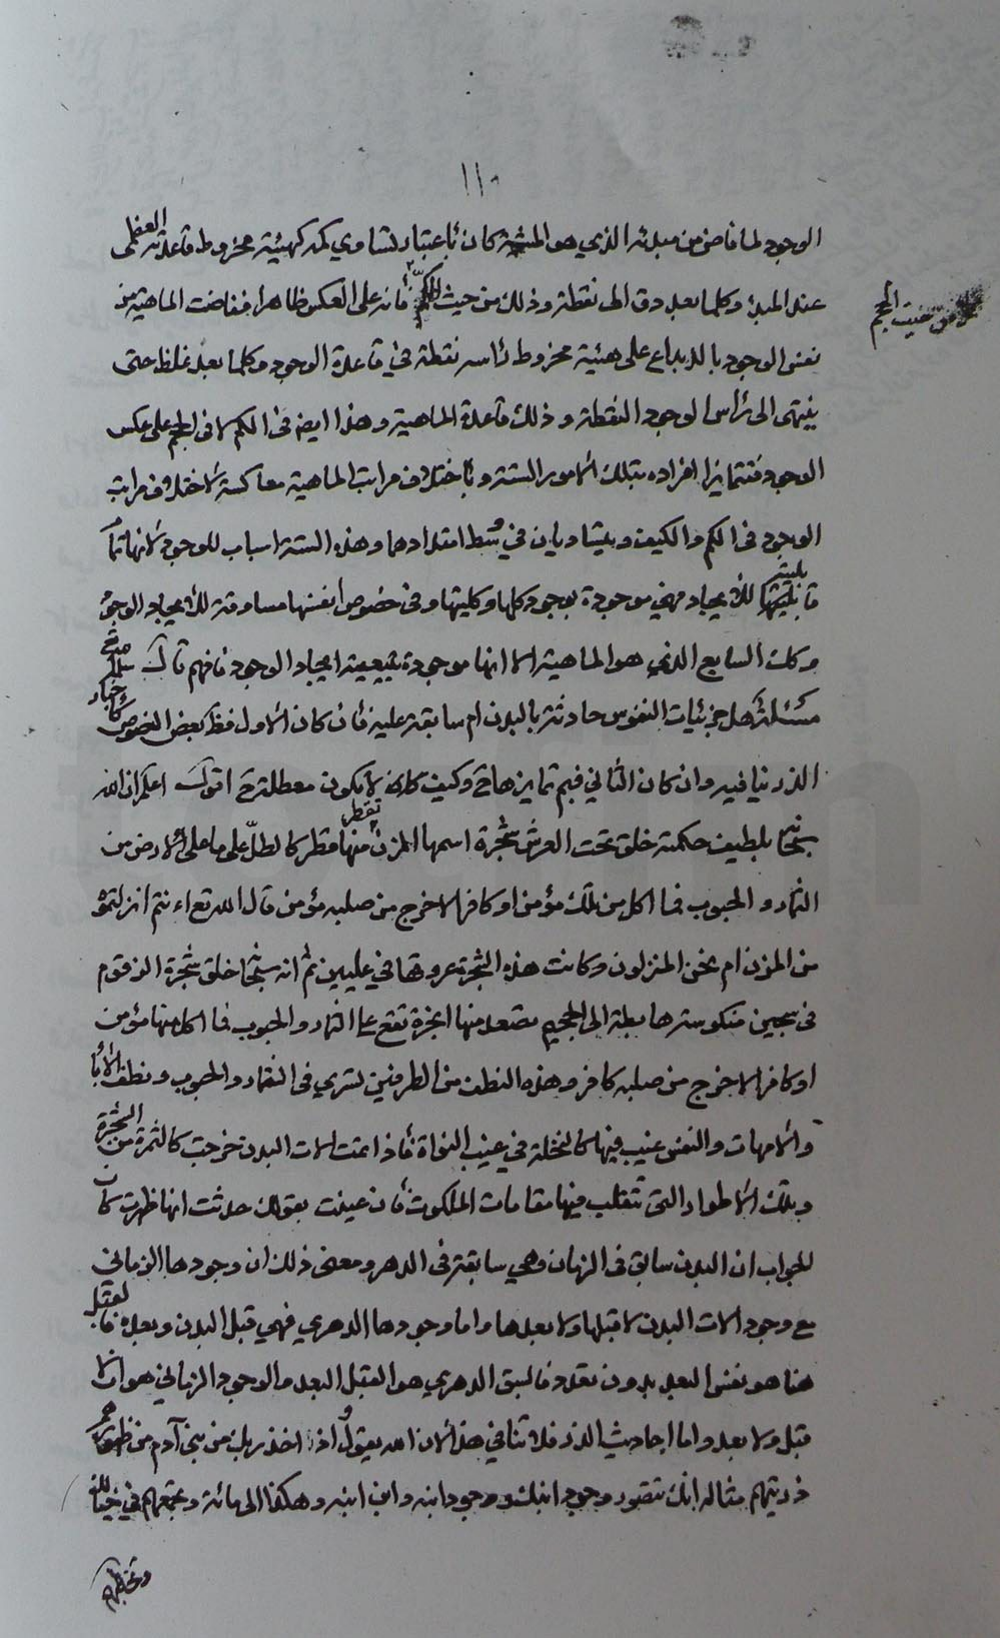 ١١٠
الوجود لما فاض من مبدئه الذي هو المشية كان باعتبار تساوي كمه كهيئة مخروط قاعدته العظمى
عند المبدء وكلما بعد دق الى نقطة وذلك من حيث الكم فانه على العكس ظاهرا ففاضت الماهية من
من حيث الحجم
نفس الوجود بالابداع على هيئة مخروط راسه نقطة في قاعدة الوجود وكلما بعد غلظ حتى
ينتهى الى راس الوجود النقطة وذلك قاعدة الماهية وهذا ايضا فى الكم لا فى الحجم على عكس
الوجود فتتمايز افراده بتلك الامور الستة و باختلاف مراتب الماهية معاكسة لاختلاف مراتب
الوجود فى الكم والكيف ويتساويان في وسط امتدادها وهذه الستة اسباب للوجود لانها
قابليته للايجاد فهي موجودة بوجود كلها وكليتها وفى خصوص انفسها مساوقة للايجاد الوجود
وكان السابع الذي هو الماهية الا انها موجودة بتبعية ايجاد الوجود فافهم قال سلمه
مسئلة هل جزئيات النفوس حادثة بالبدن ام سابقة عليه فان كان الاول فظ بعض النصوص كاخبار
الذر ينافيه وان كان الثاني فبم تمايزها ح وكيف لا يكون معطلة ح اقول اعلم ان الله
سبحانه بلطيف حكمته خلق تحت العرش شجرة اسمها المزن تقطر منها قطر كالطل على ما على الارض من
الثمار والحبوب فما اكل من تلك مؤمن او كافر الا خرج من صلبه مؤمن قال الله تع ءانتم انزلتموه
من المزن ام نحن المنزلون وكانت هذه الشجرة عروقها في عليين ثم انه سبحانه خلق شجرة الزقوم
فى سجين منكوسة هابطة الى الجحيم تصعد منها ابخرة تقع على الثمار والحبوب فما اكل منها مؤمن
او كافر الا خرج من صلبه كافر وهذه النطف من الطرفين تسري فى الثمار والحبوب ونطف الآباء
والامهات والنفس غيب فيها كالنخلة في غيب النواة فاذا تمت الات البدن خرجت كالثمرة من الشجرة
وبتلك الاطوار التى تتقلب فيها مقامات الملكوت فان عنيت بقولك حدثت انها ظهرت كان
الجواب ان البدن سابق فى الزمان وهي سابقة فى الدهر ومعنى ذلك ان وجودها الزماني
مع وجود الات البدن لا قبلها ولا بعدها واما وجودها الدهري فهي قبل البدن وبعده فالقبل
هنا هو نفس البعد بدون تعدد فالسبق الدهري هو القبل البعد والوجود الزماني هو ان لا
قبل ولا بعد واما احاديث الذر فلا تنافي هذا لان الله يقول واذ اخذ ربك من بني آدم من ظهورهم
ذريتهم مثاله انك تتصور وجود ابنك ووجود ابنه وابن ابنه وهكذا الى مائة وتجمعهم في خيالك
وتخاطبهم